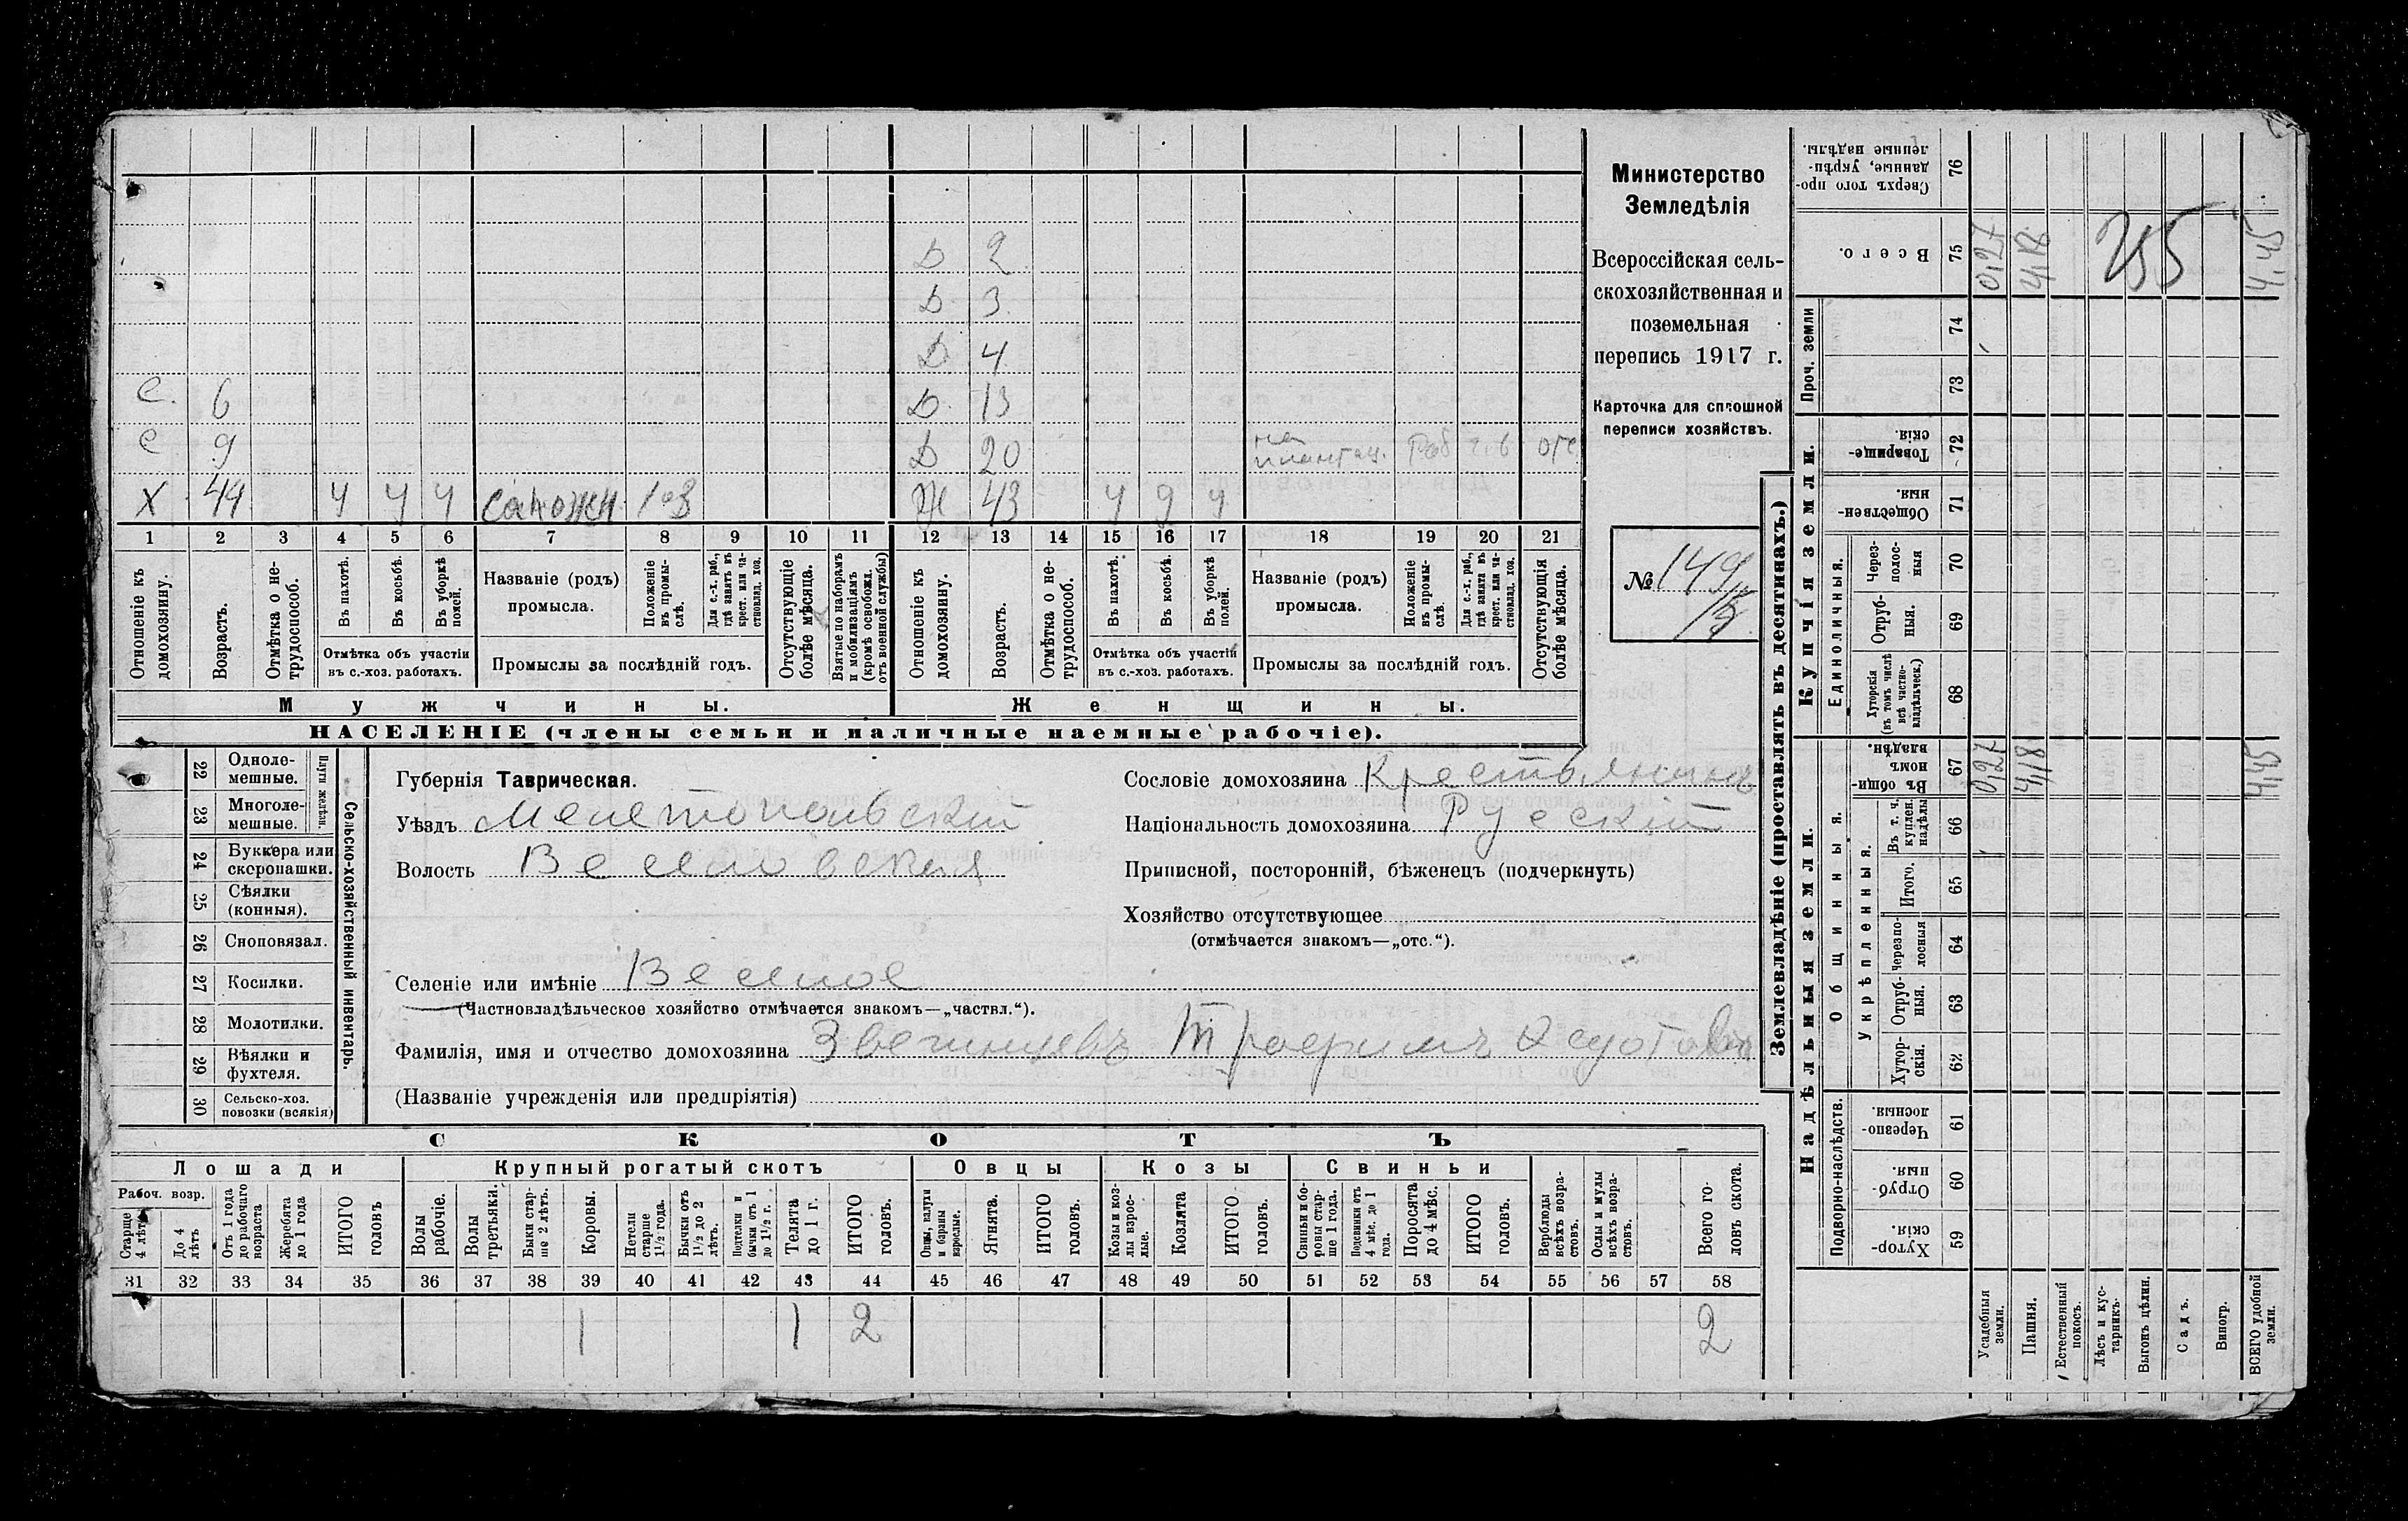 Д 2
Д 3
Д 4
С. 6 Д. 13
С 9 Д 20 на плантац. Раб отс
Х 44 ч ч ч Сапожн Ж 43 ч 9 ч
1 2 3 4 5 6 7 8 9 10 11 12 13 14 15 16 17 18 19 20 21
Отношеніе къ домохозяину.
Возрастъ.
Отмѣтка о не-
трудоспособ.
Въ пахотѣ.
Въ косьбѣ.
Въ уборкѣ полей.
Отмѣтка объ участіи
въ с.-хоз. работахъ.
Названіе (родъ)
промысла.
Положеніе въ промы-
слѣ.
Для с.-х. раб., гдѣ занятъ въ крест. или ча-
стновлад. хоз.
Промыслы за послѣдній годъ.
Отсутствующіе
болѣе мѣсяца.
Взятые по наборамъ
и мобилизаціямъ
(кромѣ освобожд.
отъ военной службы)
Отношеніе къ
домохозяину.
Возрастъ.
Отмѣтка о не-
трудоспособ.
Въ пахотѣ.
Въ косьбѣ.
Въ уборкѣ полей.
Отмѣтка объ участій
въ с.-хоз. работахъ.
Названіе (родъ)
промысла.
Положеніе въ промы-
слѣ.
Для с.-х. раб., гдѣ занята въ крест. или ча-
стновлад. хоз.
Промыслы за послѣдній годъ.
Отсутствующія
болѣе мѣсяца.
Мужчины.
Женщины.
НАСЕЛЕНІЕ (члены семьи и наличные наемные рабочіе).
Министерство
Земледѣлія
Всероссійская сель-
скохозяйственная и
поземельная
перепись 1917 г.
Карточка для сплошной
переписи хозяйствъ.
№ 149
22 Одноле-
мешные.
23 Многоле-
мешные.
Плуги желѣзн.
24 Буккера или
скоропашки.
25 Сѣялки
(конныя).
26 Сноповязал.
27 Косилки.
28 Молотилки.
29 Вѣялки и
фухтеля.
30 Сельско-хоз.
повозки (всякія)
Сельско-хозяйственный инвентарь.
Губернія Таврическая.
Уѣздъ Мелетопольскій
Волость Веселовская
Селеніе или имѣніе Веселое
(Частновладѣльческое хозяйство отмѣчается знакомъ—„частвл.“).
Фамилія, имя и отчество домохозяина Звегинцевъ Трофимъ
(Названіе учрежденія или предпріятія)
Сословіе домохозяина Крестьянинъ
Національность домохозяина Русскій
Приписной, посторонній, бѣженецъ (подчеркнуть)
Хозяйство отсутствующее
(отмѣчается знакомъ—„отс.“).
СКОТЪ
Лошади
Крупный рогатый скотъ
Овцы
Козы
Свиньи
Рабоч. возр.
Старше
4 лѣтъ
До 4
лѣтъ
Отъ 1 года
до рабочаго
возраста
Жеребята
до 1 года
ИТОГО
головъ
Волы
рабочіе.
Волы
третьяки.
Быки стар-
ше 2 лѣтъ.
Коровы.
Нетели
старше
1½ года.
Бычки отъ
1½ до 2
лѣтъ.
Подтелки и
бычки отъ 1
до 1½ г.
Телята
до 1 г.
ИТОГО
головъ.
Овцы, валухи
и бараны
взрослые.
Ягнята.
ИТОГО
головъ.
Козы и коз-
лы взрос-
лые.
Козлята
ИТОГО
головъ.
Свиньи и бо-
ровы стар-
ше 1 года.
Подсвинки отъ
4 мѣс. до 1
года.
Поросята
до 4 мѣс.
ИТОГО
головъ.
Верблюды
всѣхъ возра-
стовъ.
Ослы и мулы
всѣхъ возра-
стовъ.
Всего го-
ловъ скота.
31 32 33 34 35 36 37 38 39 40 41 42 43 44 45 46 47 48 49 50 51 52 53 54 55 56 57 58
1 1 2 2
Землевладѣніе (проставлять въ десятинахъ.)
Надѣльныя земли.
Купчія земли.
Проч. земли
Подворно-наслѣдств.
Общинныя.
Укрѣпленныя.
Единоличныя.
Сверхъ того про-
данные, укрѣп-
ленные надѣлы. 76
Всего. 75 0,27 4,18 255 4,45
74
73
Товарище-
скія. 72
Обществен-
ныя. 71
Через-
полос-
ныя 70
Отруб-
ныя. 69
Хуторскія
(въ томъ числѣ
всѣ частно-
владѣльческ.) 68
Въ общин-
номъ
владѣн. 67 0,27 4,18 4,45
Въ т. ч.
куплен.
надѣлы 66
Итого. 65
Черезпо-
лосныя 64
Отруб-
ныя. 63
Хутор-
скія. 62
Черезпо-
лосныя. 61
Отруб-
ныя. 60
Хутор-
скія. 59
Усадебныя
земли.
Пашня.
Естественный
покосъ.
Лѣсъ и кус-
тарникъ.
Выгонъ цѣлин.
Садъ.
Виногр.
ВСЕГО удобной
земли.